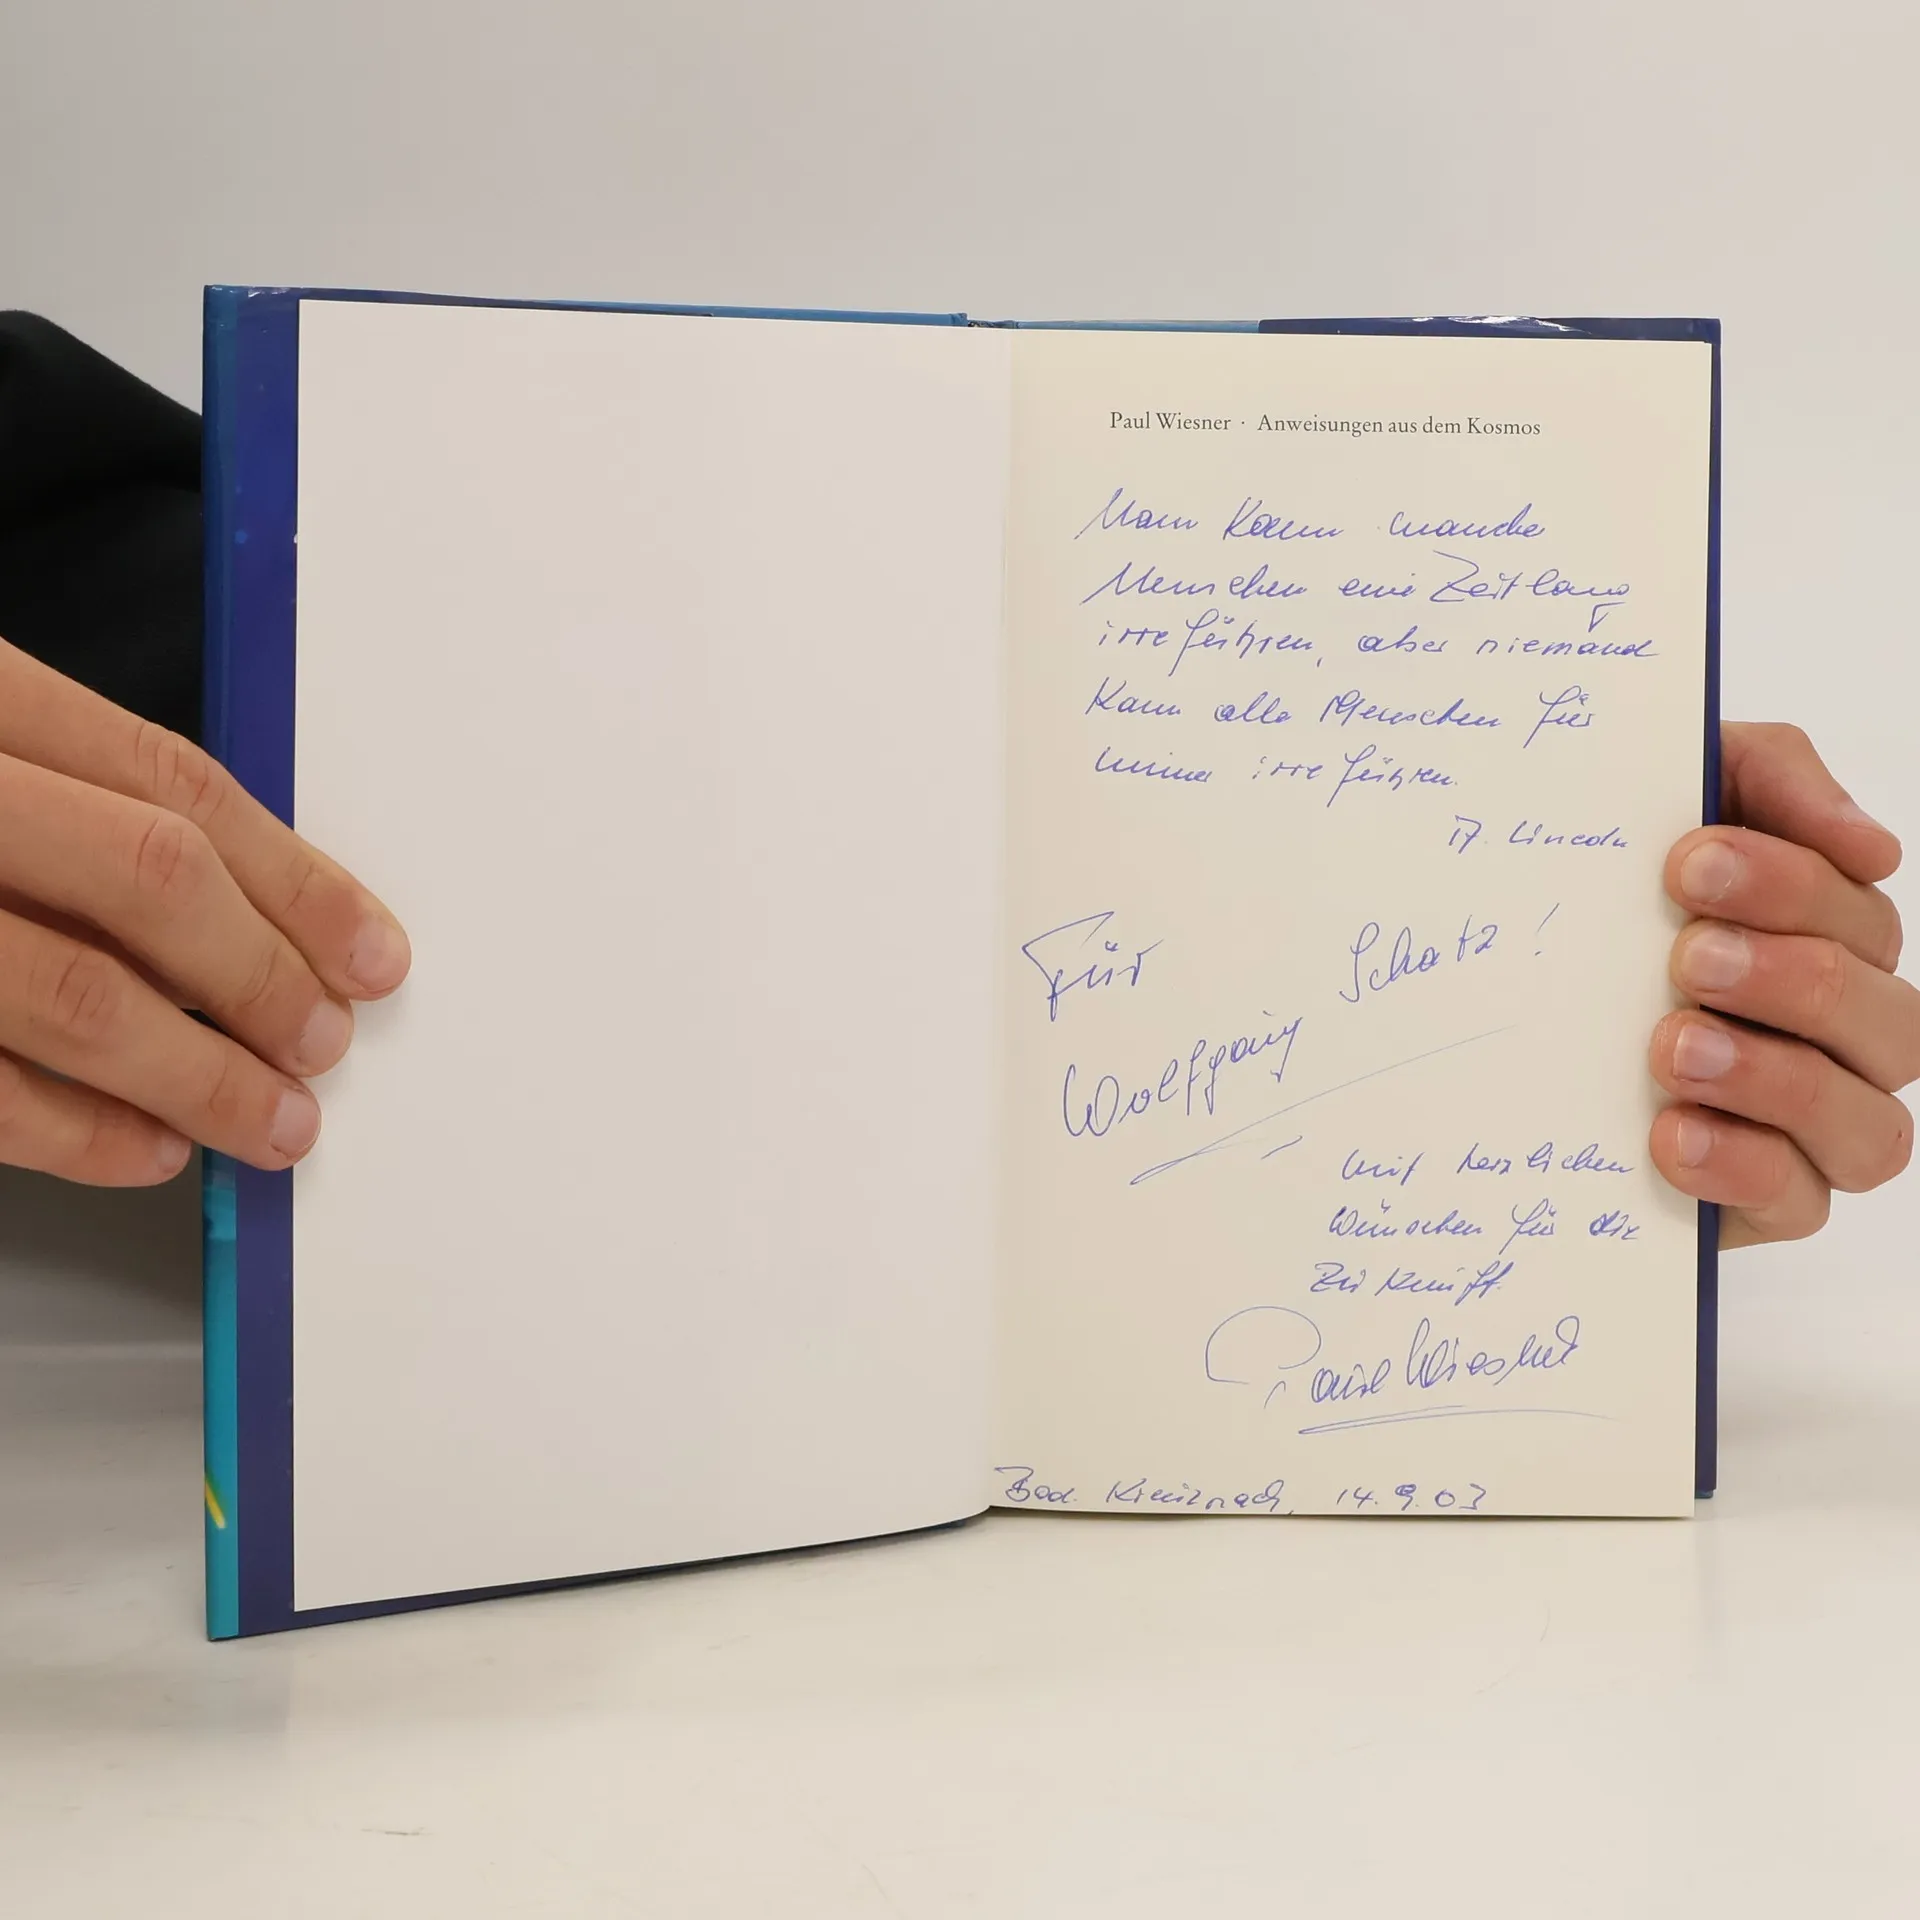 Paul Wiesner · Anweisungen aus dem Kosmos
Man kann manche
Menschen eine Zeitlang
irreführen, aber niemand
kann alle Menschen für
immer irreführen.
A. Lincoln
Für Schatz!
Wolfgang
mit herzlichen
Wünschen für die
Zukunft.
Paul Wiesner
Bad. Kreuznach, 14.9.03